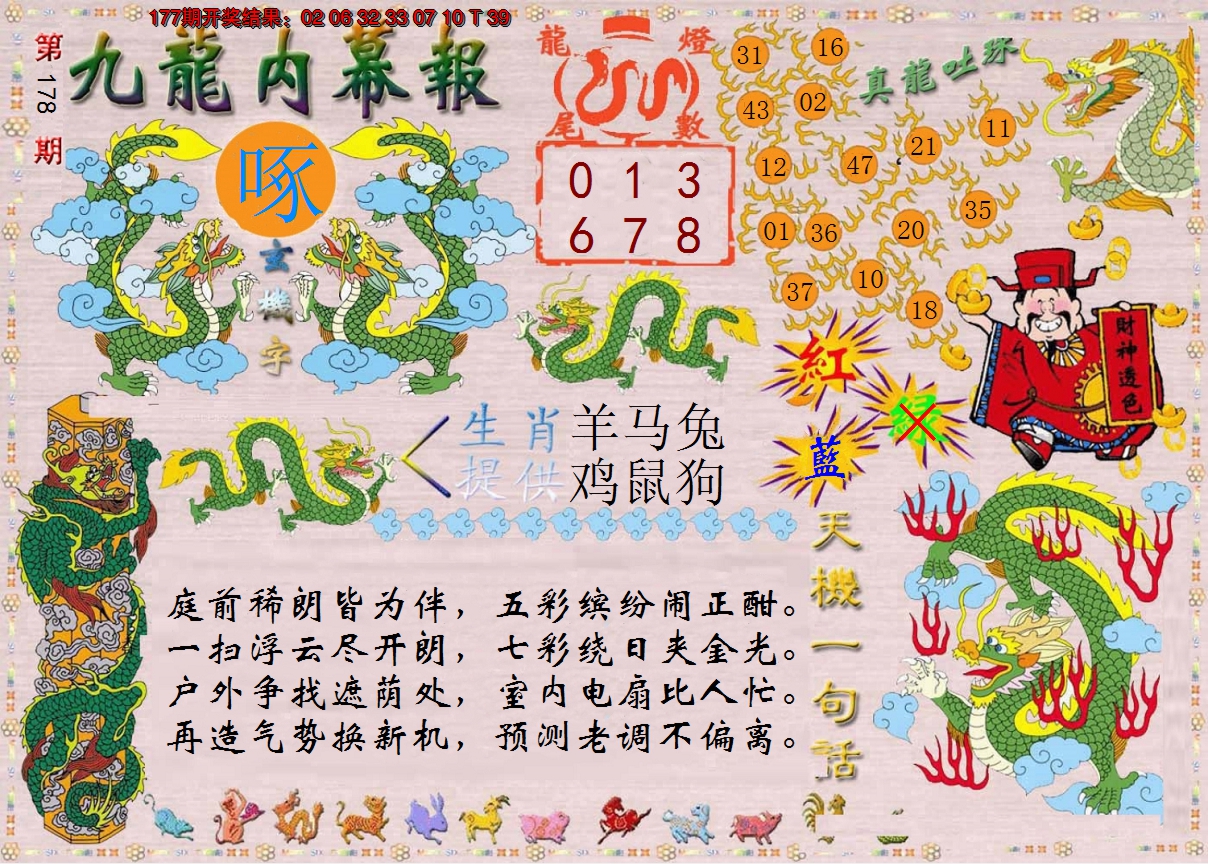 177期开奖结果：02 06 32 33 07 10 T 39
第178期
九龍内幕報
啄
玄機字
龍燈
尾數
0 1 3
6 7 8
真龍吐珠
31 16
43 02
12 47 21 11
01 36 20 35
37 10 18
紅
绿
藍
財神透色
生肖 羊马兔
提供 鸡鼠狗
天機一句话
庭前稀朗皆为伴，五彩缤纷闹正酣。
一扫浮云尽开朗，七彩绕日夹金光。
户外争找遮荫处，室内电扇比人忙。
再造气势换新机，预测老调不偏离。